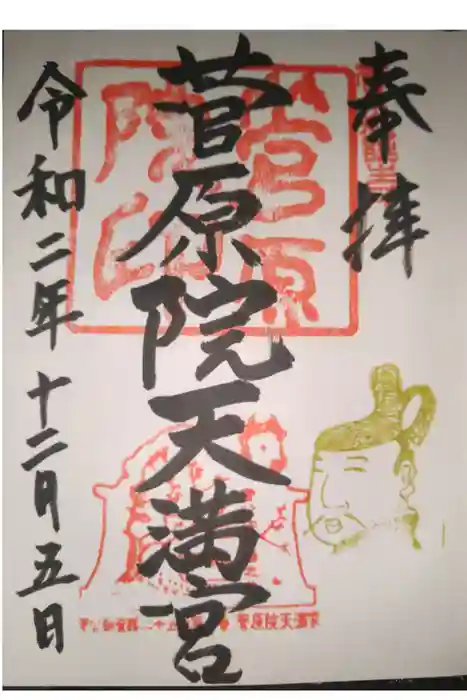 奉拝
菅原院天満宮
令和二年十二月五日
菅原院印
菅原院天満宮